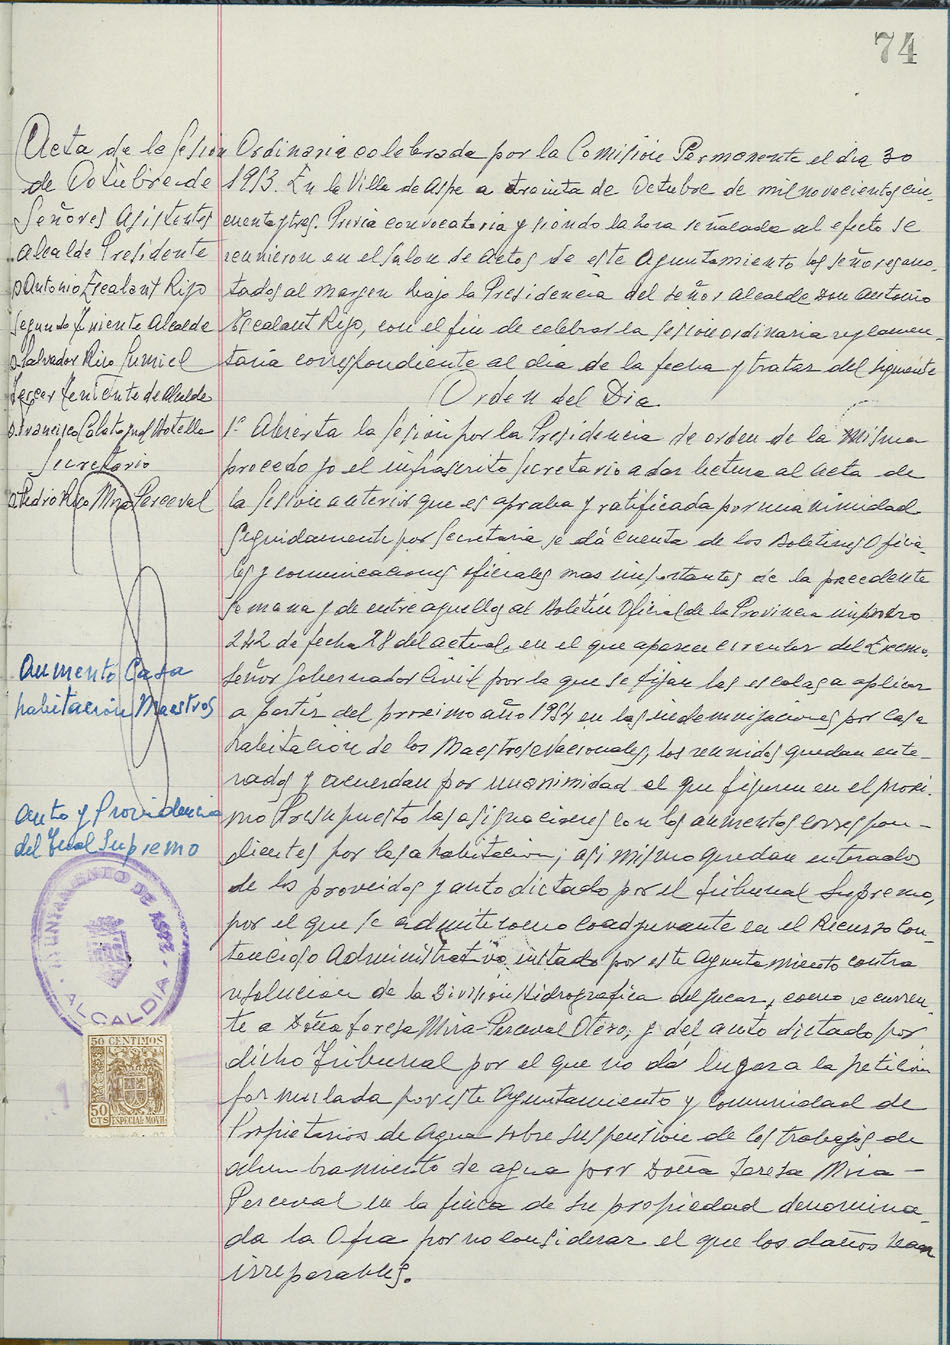 74
Acta de la Sesion Ordinaria celebrada por la Comisión Permanente el dia 30
de Octubre de 1953. En la Villa de Aspe a treinta de Octubre de mil novecientos cin-
Señores Asistentes
cuenta y tres. Previa convocatoria y siendo la hora señalada al efecto se
Alcalde Presidente
reunieron en el Salon de Actos de este Ayuntamiento los señores ano-
D. Antonio Escalant Rizo
tados al margen bajo la Presidencia del señor Alcalde Don Antonio
Segundo Teniente Alcalde
Escalant Rizo, con el fin de celebrar la sesion ordinaria reglamen-
D. Salvador Rizo Gumiel
taria correspondiente al dia de la fecha y tratar del siguiente
Tercer Teniente de Alcalde
Orden del Dia
D. Francisco Calatayud Botella
1º Abierta la Sesion por la Presidencia de orden de la Misma
Secretario
procedo yo el infrascrito Secretario a dar lectura al acta de
D. Pedro Rico Mira-Perceval
la Sesion anterior que es aprobada y ratificada por unanimidad
Seguidamente por Secretaria se dá cuenta de los Boletines Oficia-
les y comunicaciones oficiales mas importantes de la precedente
semana y de entre aquellos al Boletin Oficial de la Provincia numero
242 de fecha 28 del actual, en el que aparece circular del Excmo.
Señor Gobernador Civil por la que se fijan las escalas a aplicar
a partir del proximo año 1954 en las indemnizaciones por casa
habitacion de los Maestros Nacionales, los reunidos quedan ente-
rados y acuerdan por unanimidad el que figuren en el proxi-
mo Presupuesto las asignaciones con los aumentos correspon-
dientes por casa habitacion; asi mismo quedan enterados
de los proveidos y auto dictado por el Tribunal Supremo,
por el que se admite como coadyuvante en el Recurso Con-
tencioso Administrativo instado por este Ayuntamiento contra
resolucion de la Division Hidrografica del Jucar, como recurren-
te a Doña Teresa Mira-Perceval Otero; y del auto dictado por
dicho Tribunal por el que no dá lugar a la peticion
formulada por este Ayuntamiento y Comunidad de
Propietarios de Agua sobre suspension de los trabajos de
alumbramiento de agua por Doña Teresa Mira-
Perceval en la finca de su propiedad denomina-
da la Ofra por no considerar el que los daños sean
irreparables.
Aumento Casa
habitación Maestros
Auto y Providencia
del Tral Supremo
AYUNTAMIENTO DE ASPE
ALCALDIA
50 CENTIMOS
50
CTS
ESPECIAL MOVIL